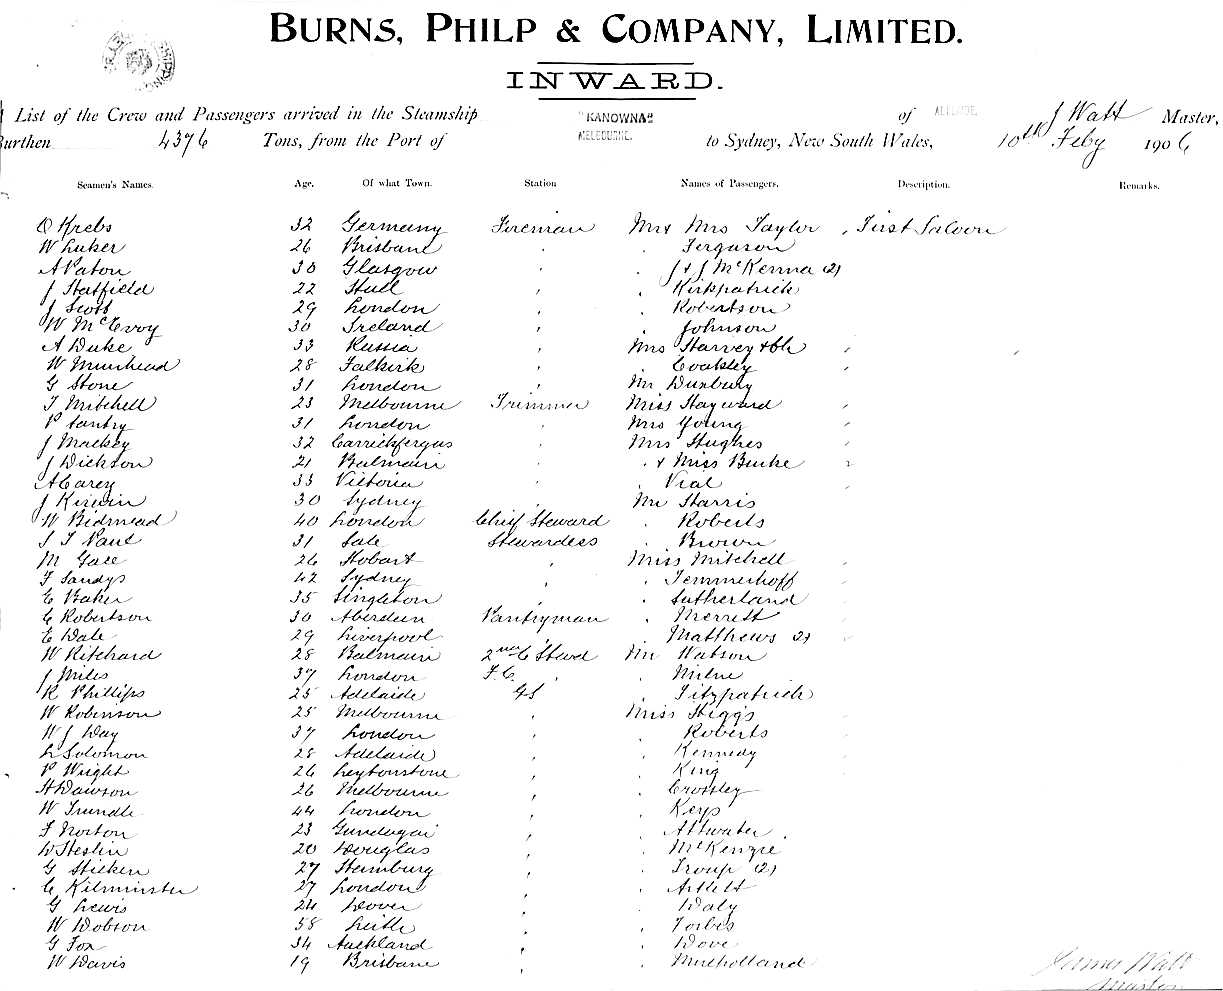 BURNS, PHILP & COMPANY, LIMITED.
INWARD.
List of the Crew and Passengers arrived in the Steamship "KANOWNA" of ADELAIDE J Watt Master,
Burthen 4376 Tons, from the Port of MELBOURNE. to Sydney, New South Wales, 10th Feby 1906
Seamen's Names. Age. Of what Town. Station Names of Passengers. Description. Remarks.
O Krebs 32 Germany Fireman Mr & Mrs Taylor First Saloon
W Luker 26 Brisbane Ferguson
A Paton 30 Glasgow J & J McKenna (2)
J Hatfield 22 Hull Kirkpatrick
J Scott 29 London Robertson
W McEvoy 30 Ireland Johnson
A Duke 33 Russia Mrs Harvey & Ch
W Muirhead 28 Falkirk Coakley
G Stone 31 London Mr Duxbury
T Mitchell 23 Melbourne Trimmer Miss Hayward
P Santry 31 London Mrs Young
J Mackey 32 Carrickfergus Mrs Hughes
J Dickson 21 Balmain & Miss Burke
A Carey 33 Victoria Vial
J Kirwin 30 Sydney Mr Harris
W Bidmead 40 London Chief Steward Roberts
31 Sale Stewardess Brown
M 26 Hobart Miss Mitchell
F Sandys 42 Sydney Temmerhoff
E Baker 35 Singleton Sutherland
C Robertson 30 Aberdeen Pantryman Merrett
E Dale 29 Liverpool Matthews (2)
W Ritchard 28 Balmain 2nd C Steward Mr Watson
J Miles 37 London F.C. Milne
R Phillips 25 Adelaide GS Fitzpatrick
W Robinson 25 Melbourne Miss Higgs
W J Day 37 London Roberts
L Solomon 28 Adelaide Kennedy
P Wright 26 Leytonstone King
H Dawson 26 Melbourne Crossley
W Trundle 44 London Keys
F Norton 23 Gundagai Attwater
W Heslin 20 Douglas McKenzie
G 27 Hamburg Troup (2)
C Kilminster 27 London
G Lewis 24 Dover Daly
W Dobson 38 Leith Forbes
G Fox 34 Auckland Dove
W Davis 19 Brisbane Mulholland
James Watt
Master